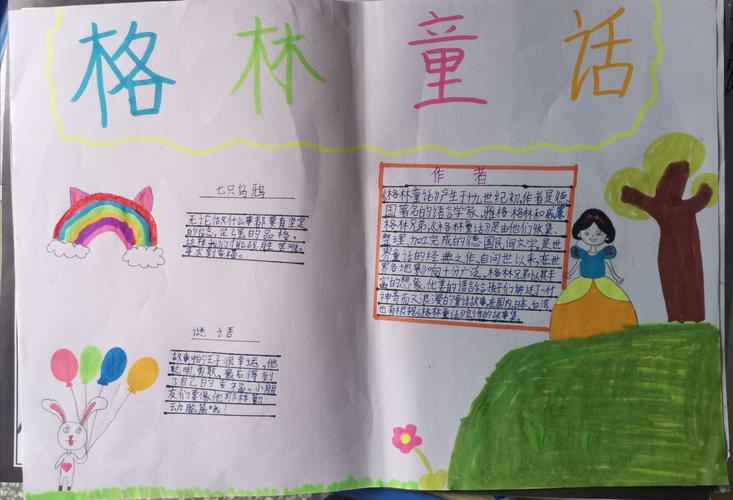 格林童话
七只乌鸦
无论做什么事都要有坚定
的信念,坚强的品格,
这样我们才能战胜困难,
寻找到幸福。
谜语
故事中的王子很幸运,他
聪明勇敢,最后得到
了自己的幸福。小朋
友们要像他那样勤
动脑筋哦!
作者
《格林童话》产生于十九世纪初,作者是德
国著名的语言学家,雅格·格林和威廉·
格林兄弟,《格林童话》是由他们收集、
整理、加工完成的德国民间文学,是世
界童话的经典之作,自问世以来,在世
界各地影响十分广泛。格林兄弟以其丰
富的想象、优美的语言给孩子们讲述了一个个
神奇而又浪漫的童话故事,在国内,日本,台湾
也有根据《格林童话》创作的故事集。